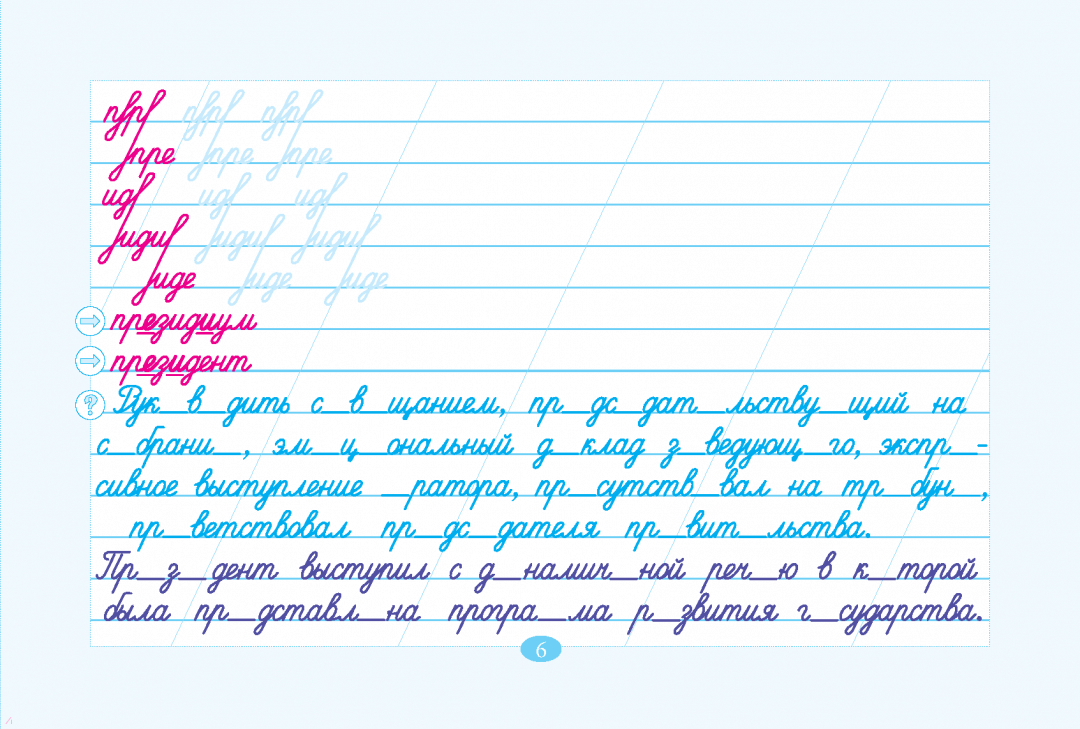 пре
иди
иди
иде
президиум
президент
? Рук__в__дить с__в__щанием, пр__дс__дат__льству__щий на
с__брани__, эм__ц__ональный д__клад з__ведующ__го, экспр__-
сивное выступление __ратора, пр__сутств__вал на тр__бун__,
пр__ветствовал пр__дс__дателя пр__вит__льства.
Пр__з__дент выступил с д__намич__ной реч__ю в к__торой
была пр__дставл__на програ__ма р__звития г__сударства.
6